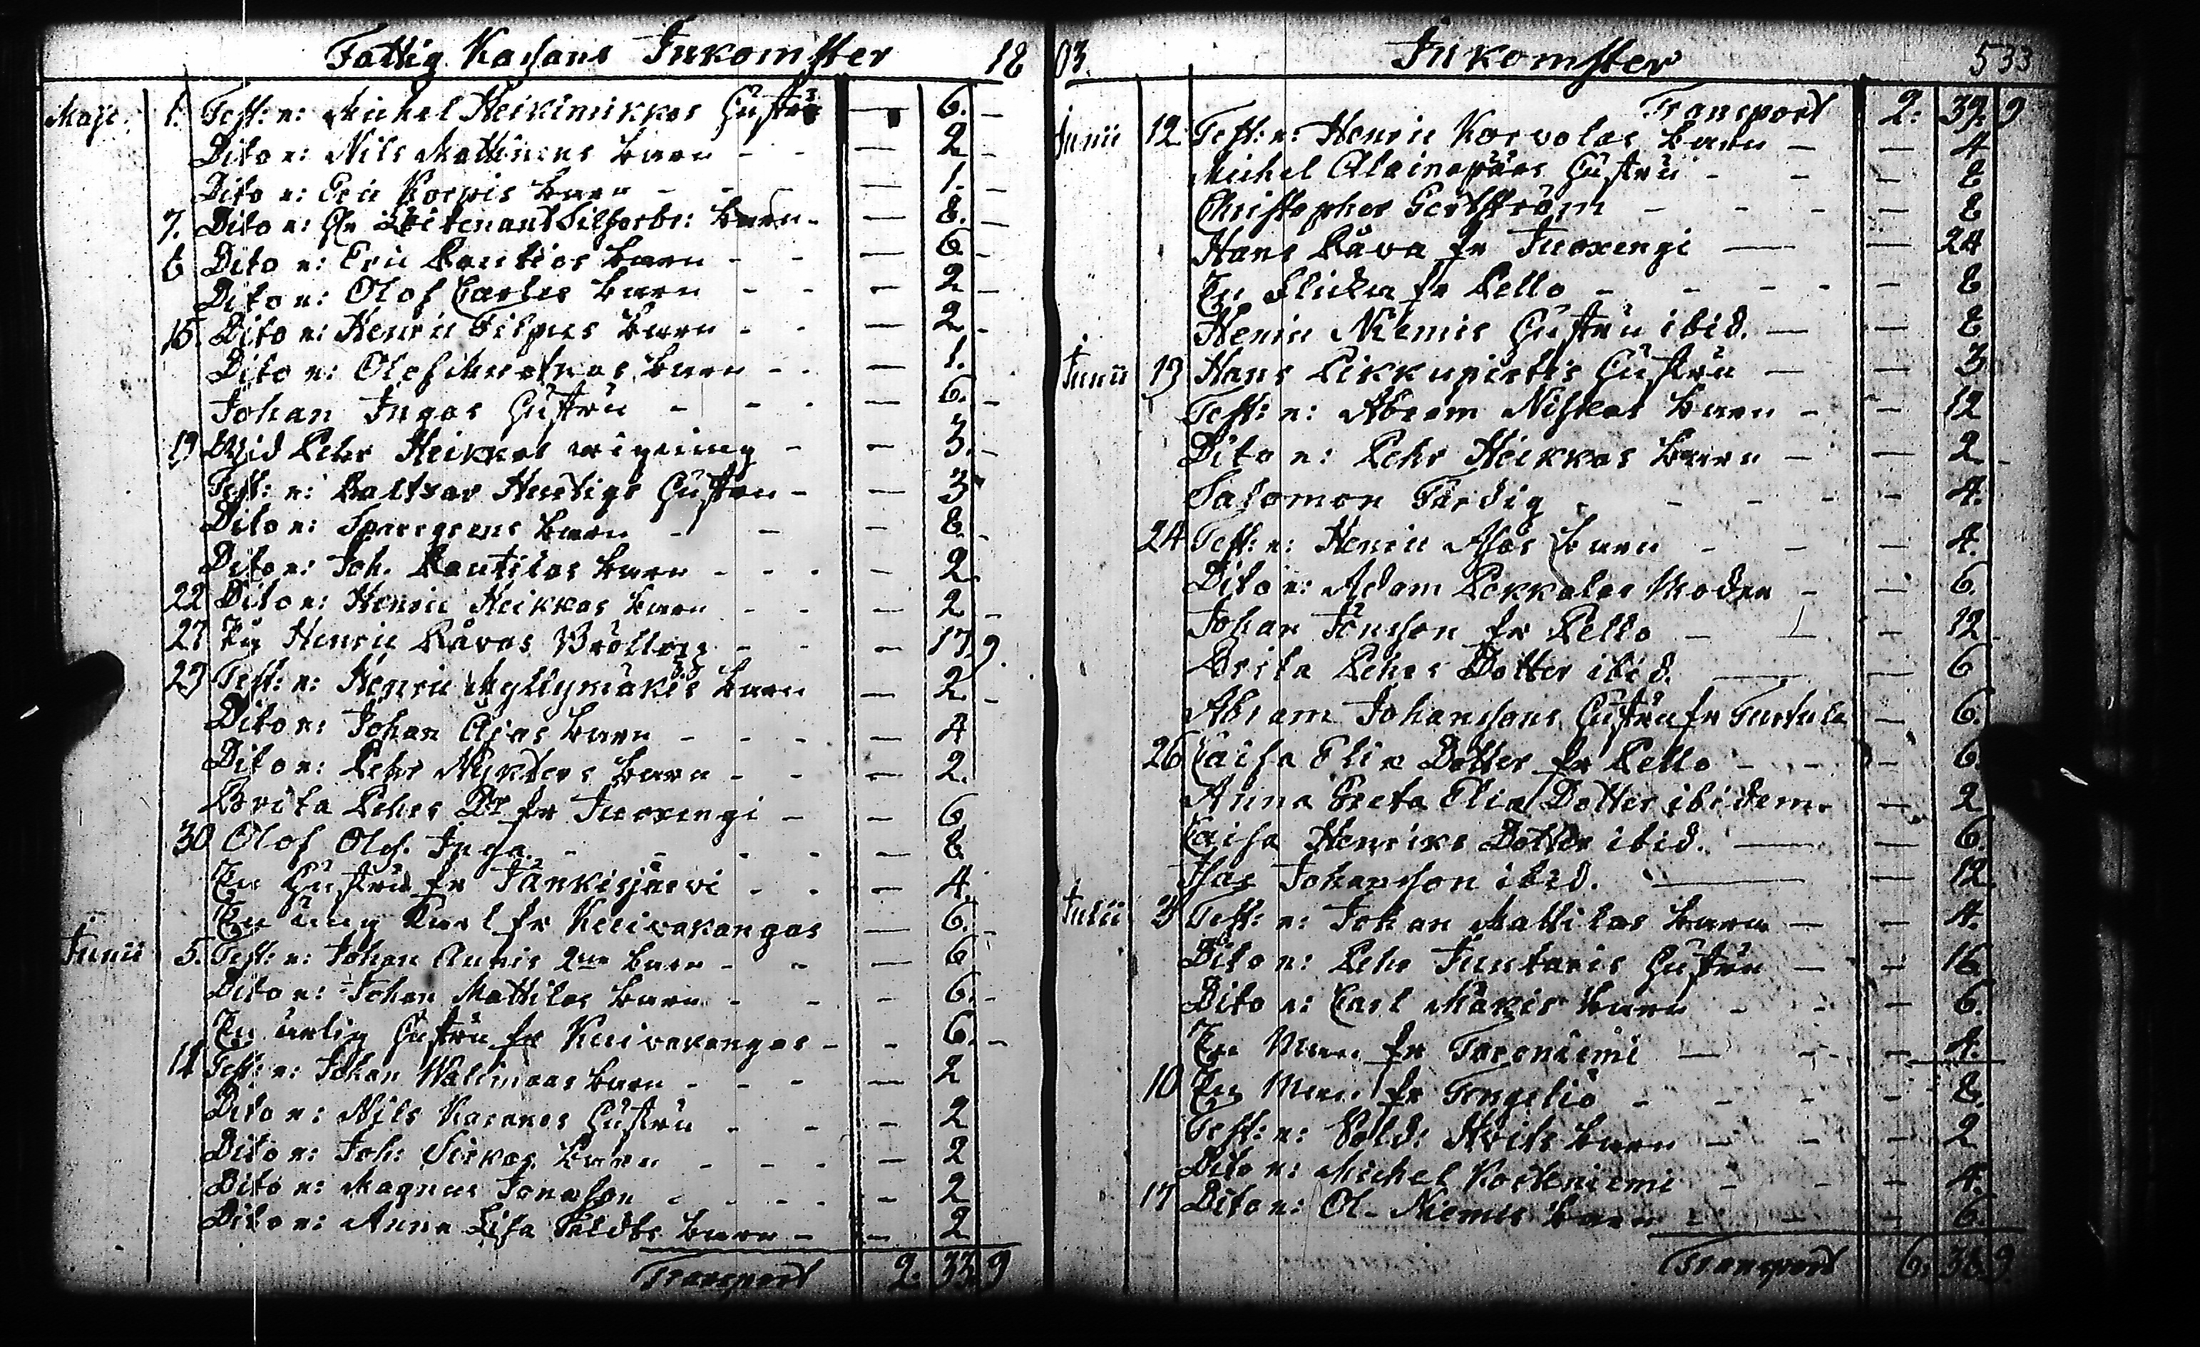 Fattig Kassans Inkomster 18
Maji 1. Test: e: Michel Heikimikkos Hustru — 6. -
Dito e: Nils Mattinens barn - - — 2 -
Dito e: Eric Korpis barn - - — 1. -
7. Dito e: Hr Leitenant Silferbr: barn - — 8. -
8 Dito e: Eric Rautios barn - - — 6. -
Dito e: Olof barn - - — 2 -
15. Dito e: Henric Filpus barn - - — 2 -
Dito e: Olof barn - - — 1.
Johan Ingos Hustru - - - — 6. -
19 Wid Pehr Heikkos wigning - — 3. -
Test: e: Baltzar Huktigs Hustru - — 3
Dito e: barn - - — 8. -
Dito e: Joh. Rautilas barn - - - — 2
22 Dito e: Henric Heikkas barn - - — 2 -
27 På Henric Råvas Bröllop - - — 17. 9.
29 Test: e: Henric Myllymäkis barn — 2 -
Dito e: Johan barn - - - — 4
Dito e: Pehr barn - - — 2.
Brita Pehrs Dr fr Tuoxengi - — 6
30 Olof Olofs. Inga. - - - — 8.
En Hustru fr Tänkisjärvi - - — 4.
En ung Karl fr Kuivakangas — 6. -
Junii 5. Test: e: Johan Annis 2ne barn - - — 6
Dito e: Johan Mattilas barn - - - 6. -
En ärlig Hustru fr Kuivakangas - - 6. -
11 Test: e: Johan Walimaas barn - - - — 2
Dito e: Nils Hustru - - — 2
Dito e: Joh: Sirkas barn - - - — 2
Dito e: Magnus Jonasson - - - - 2
Dito e: Anna Lisa barn - - 2
Transport 2. 33. 9
03. Inkomster 533
Transport 2: 39. 9
Junii 12 Test: e: Henric Korvolas barn — — 4
Michel Alainepääs Hustru - - — 8
Christopher - - - — 8
Hans Råva fr Tuoxengi — — 24
En Flicka fr Pello - - - - — 8
Henric Niemis Hustru ibid. — — 8
Junii 13 Hans Hustru — — 3
Test: e: Abram Niskas barn - — 12
Dito e: Pehr Heikkas barn - — 2 -
Salomon Färdig - - - - — 4.
24 Test: e: Henric barn - - — 4.
Dito e: Adam Pekkalas Moder - — 6.
Johan Jönsson fr Pello - - — 12
Brita Pehrs Dotter ibid. — — 6
Abram Johanssons Hustru fr Turtula — 6.
26 Caisa Elias Dotter fr Pello - - — 6.
Anna Greta Elias Dotter ibidem. — 2
Caisa Henriks Dotter ibid. — — 6.
Isac Johansson ibid. — — 12.
Julii 3 Test: e: Johan Mattilas barn — — 4.
Dito e: Pehr Juntaris Hustru — — 16.
Dito e: Carl Mäkis barn - - — 6.
En Man fr — - — 4.
10 En Man fr Tengeliö - - - - 8.
Test: e: Sold: Hvits barn - - — 2
Dito e: Michel Korteniemi - - — 4.
17 Dito e: Ol. Niemis barn - - — 6.
Transport 6. 38. 9.